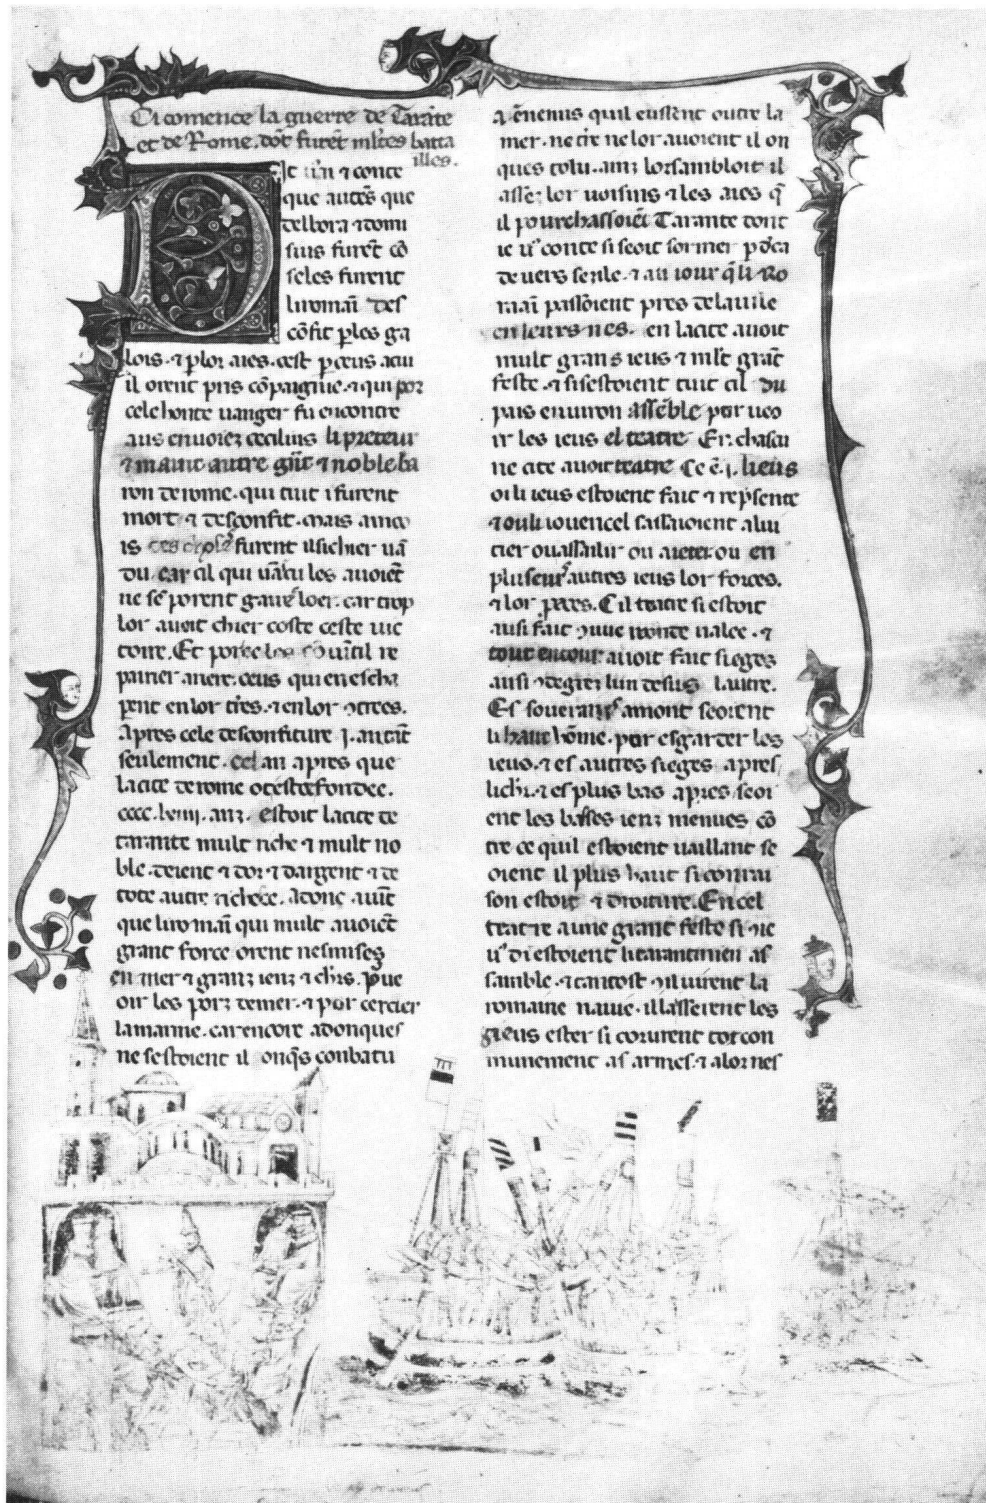 Ci comence la guerre de Tarāte
et de Rome. dōt furēt ml̄tes batta
illes.
It v'ai ꞇ conte
que autēs que
dellora ꞇ domi
sius furēt cō
seles furent
li romai des
cōfit ꝑ les ga
lois. ꞇ ꝑ lor aies. cest ꝑ ceus a cui
il orent pris cōpaignie. ꞇ qui por
cele honte uanger fu encontre
aus enuoiez cecilius li preteur
ꞇ maint autre gūt ꞇ noble ba
ron de rome. qui tuit i furent
mort. ꞇ desconfit. mais ainco
is furent il si chier uā
du. car cil qui uācu les auoiēt
ne se porent gaire loer. car trop
lor auoit chier coste ceste uic
toire. Et por ce les couītil re
pairier ariere. ceus qui en escha
perent en lor tr̄es. ꞇ en lor ꝯtrees.
Apres cele desconfiture j. an tāt
seulement. cel an apres que
la cite de rome ot este fondee.
cccc. lxiiij. anz. estoit la cite de
tarante mult riche ꞇ mult no
ble. deient ꞇ dor ꞇ dargent ꞇ de
tote autre richece. Adonc auīt
que li romai qui mult auoiēt
grant force orent nes mises
en mer ꞇ granz ienz ꞇ chīs. ꝑ ue
oir les porz de mer. ꞇ por cercier
la marine. car encore adonques
ne sestoient il onq̄s conbatu
a ēnemis quil eussent outre la
mer. ne t̄re ne lor auoient il on
ques tolu. ainz lor sambloit il
assez lor uoisins ꞇ les aies q̄
il pourchassoiēt Tarante dont
ie us conte si seoit sor mer ꝑ deca
deuers sezile. ꞇ au iour q̄ li Ro
mai passoient pres de la uile
en leurs nes. en la cite auoit
mult grans ieus ꞇ ml̄t grāt
feste. ꞇ si sestoient tuit cil du
pais enuiron assēble por ueo
ir les ieus el teatre. En chascu
ne cite auoit teatre Ce ē .i. lieus
ou li ieus estoient fait ꞇ rep̄sente
ꞇ ou li iouencel sassaioient a lui
tier ou assailir ou a ieter. ou en
pluseurs autres ieus lor forces.
ꞇ lor proeces. Cil teatre si estoit
ausi fait ꝯ une reonde ualee. ꞇ
tout entour auoit fait sieges
ausi ꝯ degrez lun desus lautre.
Es souerains amont seoient
li haut hōme. por esgarder les
ieus. ꞇ es autres sieges apres
li chīr. ꞇ es plus bas apres seoi
ent les basses ienz menues cō
tre ce quil estoient uaillant se
oient il plus haut si con rai
son estoit ꞇ droiture. En cel
teatre a une grant feste si ꝯ ie
us di estoient li tarantinien as
samble. ꞇ tantost ꝯ il uirent la
romaine nauie. il lasserent les
gieus ester si corurent tot con
munement as armes. ꞇ a lor nes